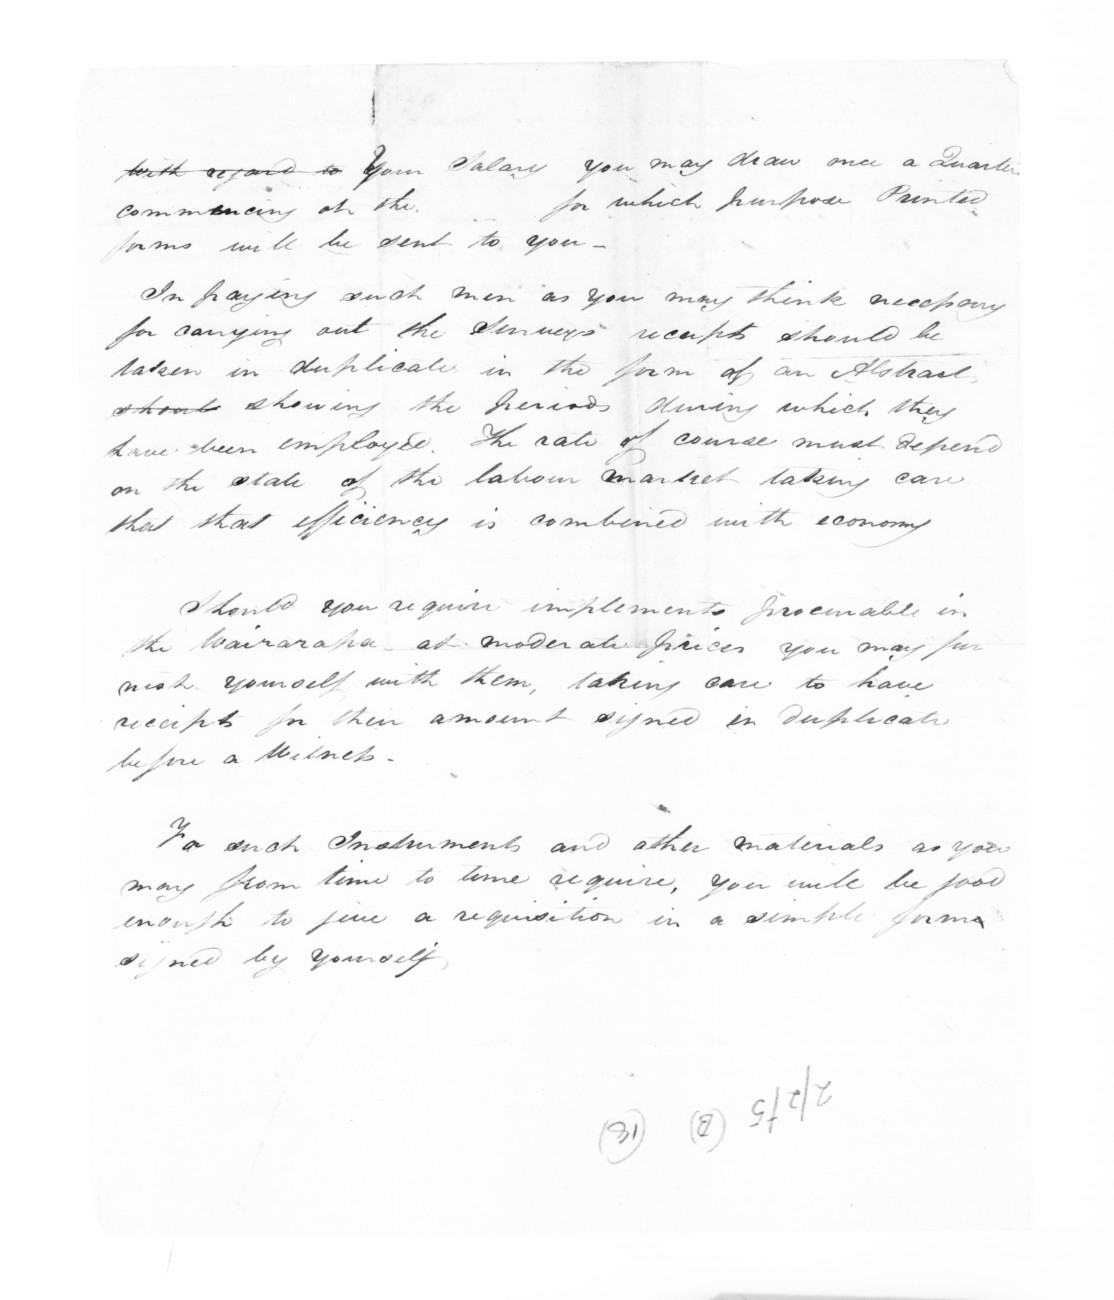 With regard to Your Salary you may draw once a Quarter
commencing on the. for which purpose Printed
forms will be sent to you -
In paying such men as you may think necessary
for carrying out the Surveys receipts should be
taken in duplicate in the form of an Abstract
should showing the periods during which they
have been employed. The rate of course must depend
on the state of the labour market taking care
that that efficiency is combined with economy
Should you require implements procurable in
the Wairarapa at moderate prices you may fur
nish yourself with them, taking care to have
receipts for their amount signed in duplicate
before a Witness -
For such Instruments and other materials as you
may from time to time require, you will be good
enough to give a requisition in a simple form
signed by yourself,
(B) (18)